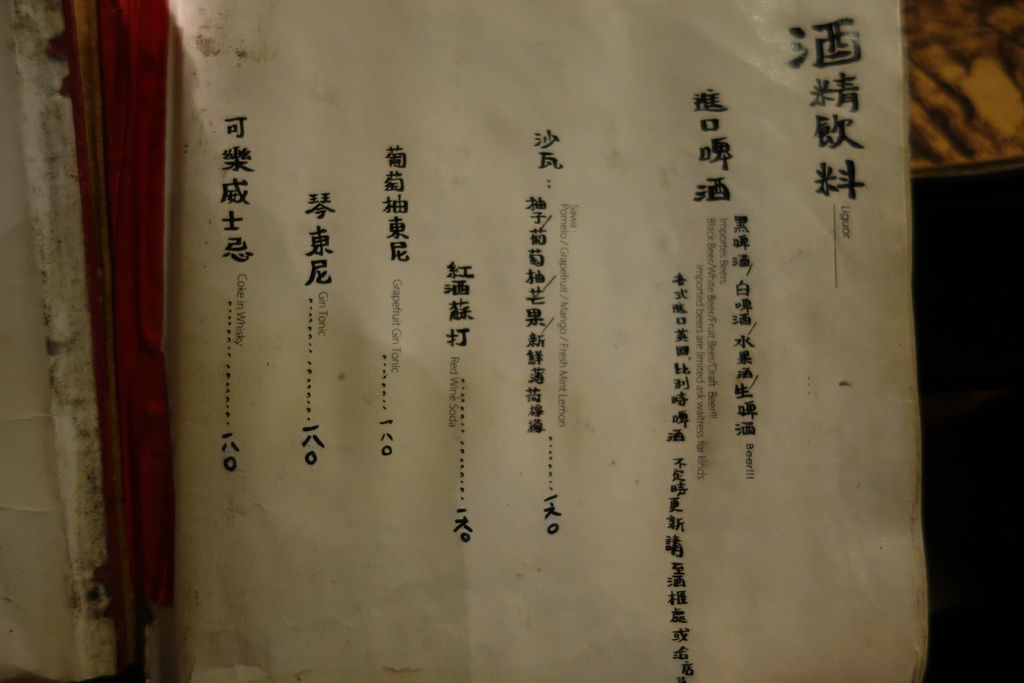 酒精飲料
Liquor
進口啤酒
黑啤酒/白啤酒/水果酒/生啤酒 Beer!!!
Importes Beers:
Black Beer/White Beer/Fruit Beer/Draft Beer!!!
Imported beers are limited ask waitress for kinds
各式進口英國.比利時啤酒 不定時更新請至酒櫃處或洽店
沙瓦:
Sawa
Pomelo / Grapefruit / Mango / Fresh Mint Lemon
柚子/葡萄柚/芒果/新鮮薄荷檸檬 ........一六0
紅酒蘇打 Red Wine Soda ........一六0
葡萄柚東尼 Grapefruit Gin Tonic ........一八0
琴東尼 Gin Tonic ........一八0
可樂威士忌 Coke in Whisky ........一八0